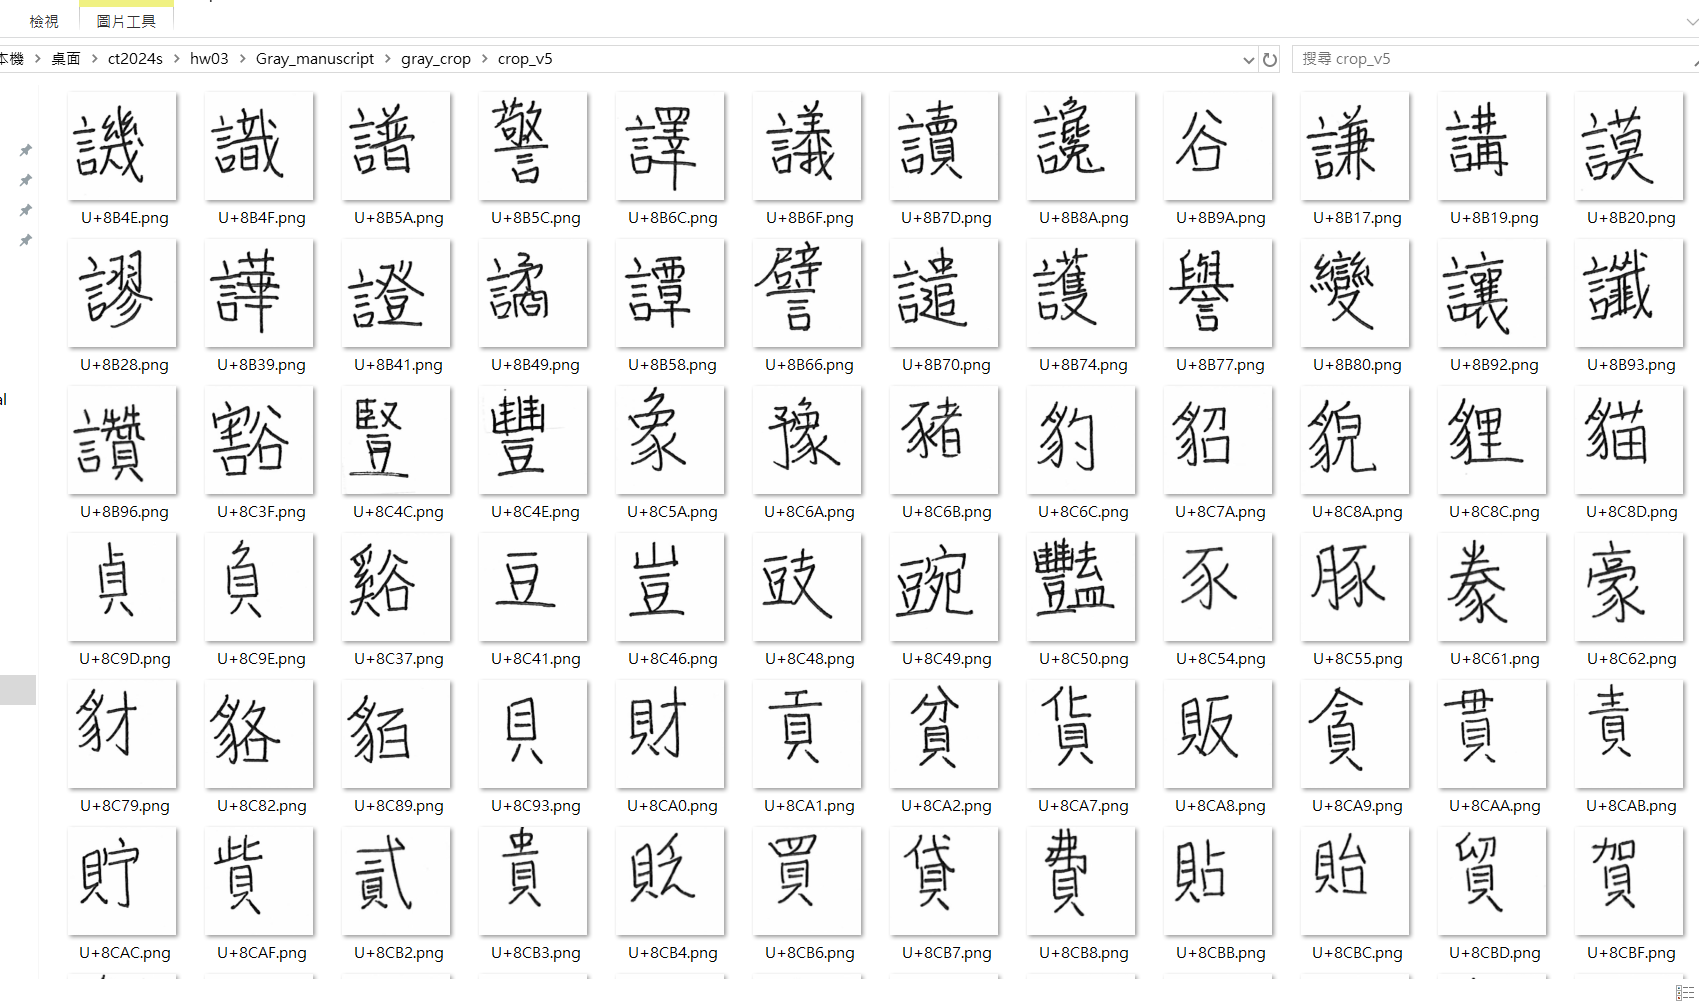 檢視 圖片工具
本機 > 桌面 > ct2024s > hw03 > Gray_manuscript > gray_crop > crop_v5 搜尋 crop_v5
譏 識 譜 警 譯 議 讀 讒 谷 謙 講 謨
U+8B4E.png U+8B4F.png U+8B5A.png U+8B5C.png U+8B6C.png U+8B6F.png U+8B7D.png U+8B8A.png U+8B9A.png U+8B17.png U+8B19.png U+8B20.png
謬 譁 證 譎 譚 譬 譴 護 譽 變 讓 讖
U+8B28.png U+8B39.png U+8B41.png U+8B49.png U+8B58.png U+8B66.png U+8B70.png U+8B74.png U+8B77.png U+8B80.png U+8B92.png U+8B93.png
讚 豁 豎 豐 象 豫 豬 豹 貂 貌 貍 貓
U+8B96.png U+8C3F.png U+8C4C.png U+8C4E.png U+8C5A.png U+8C6A.png U+8C6B.png U+8C6C.png U+8C7A.png U+8C8A.png U+8C8C.png U+8C8D.png
貞 負 谿 豆 豈 豉 豌 豔 豕 豚 豢 豪
U+8C9D.png U+8C9E.png U+8C37.png U+8C41.png U+8C46.png U+8C48.png U+8C49.png U+8C50.png U+8C54.png U+8C55.png U+8C61.png U+8C62.png
豺 貉 貊 貝 財 貢 貧 貨 販 貪 貫 責
U+8C79.png U+8C82.png U+8C89.png U+8C93.png U+8CA0.png U+8CA1.png U+8CA2.png U+8CA7.png U+8CA8.png U+8CA9.png U+8CAA.png U+8CAB.png
貯 貲 貳 貴 貶 買 貸 費 貼 貽 貿 賀
U+8CAC.png U+8CAF.png U+8CB2.png U+8CB3.png U+8CB4.png U+8CB6.png U+8CB7.png U+8CB8.png U+8CBB.png U+8CBC.png U+8CBD.png U+8CBF.png